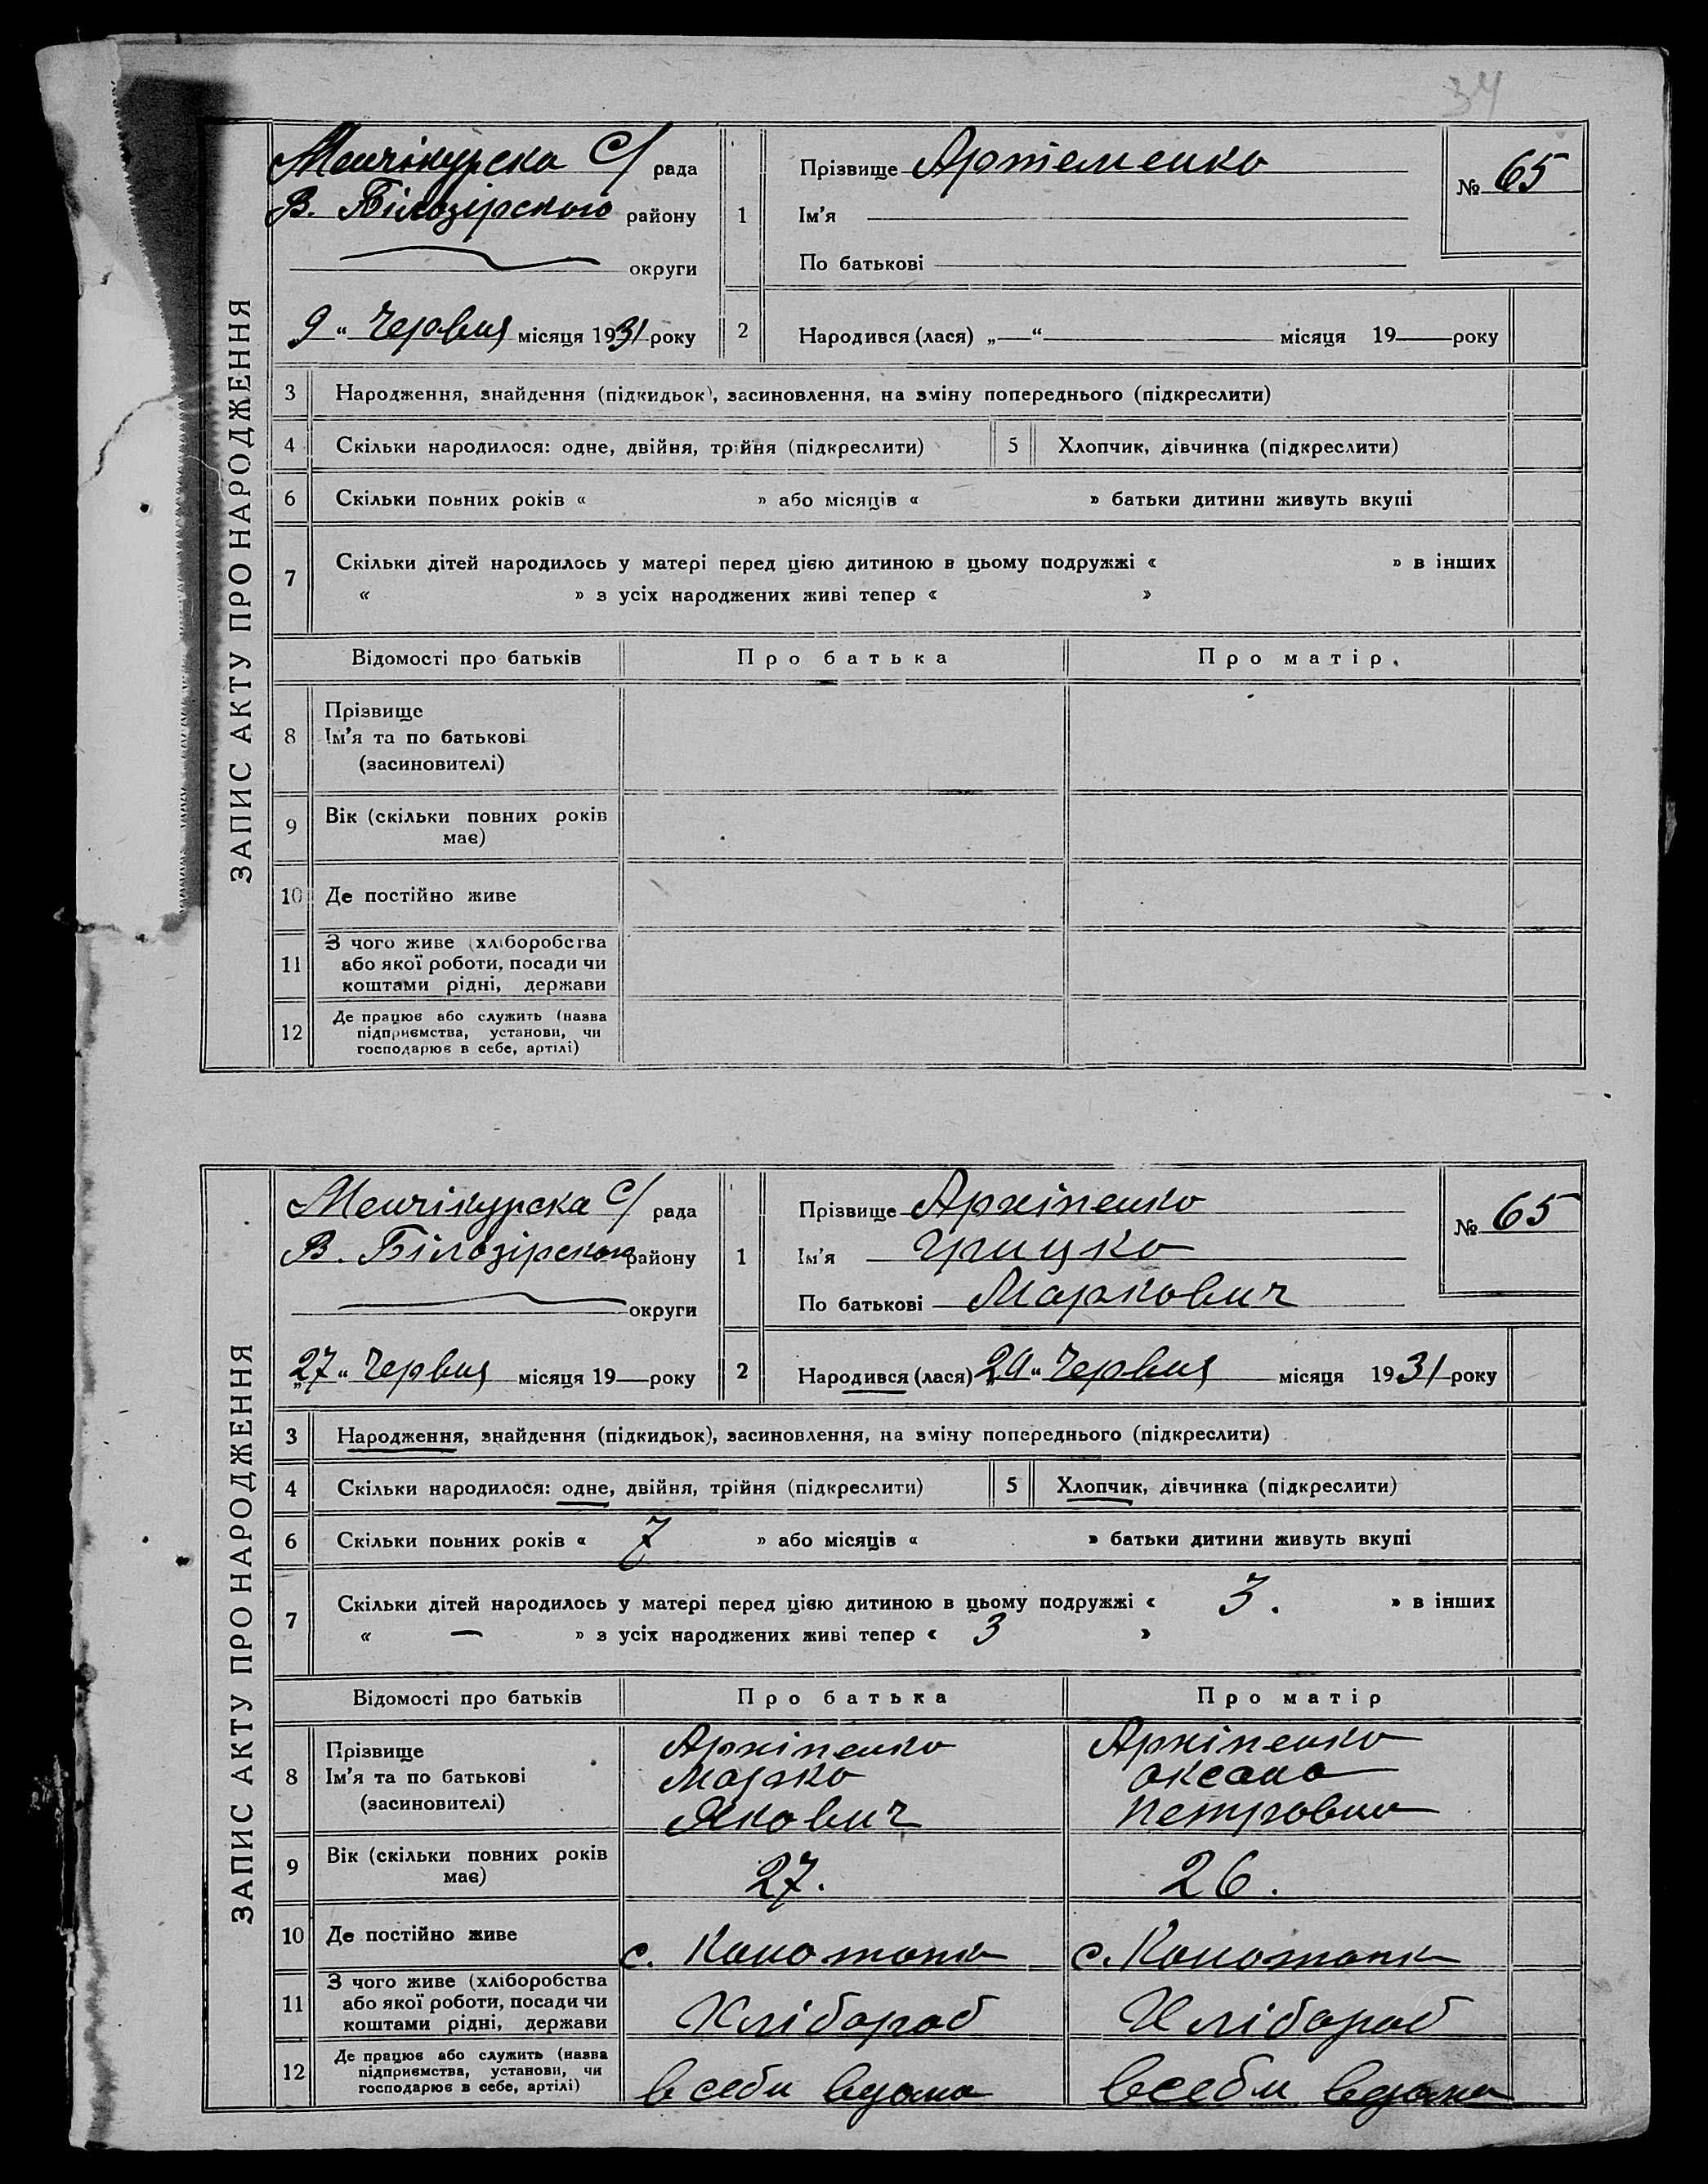 34
ЗАПИС АКТУ ПРО НАРОДЖЕННЯ
Менчікурска С/ рада
В. Білозірского району
округи
9 " Червня місяця 1931 року
1 Прізвище Артеменко
Ім'я
По батькові
№ 65
2 Народився (лася) „ — “ місяця 19 — року
3 Народження, знайдення (підкидьок), засиновлення, на зміну попереднього (підкреслити)
4 Скільки народилося: одне, двійня, трійня (підкреслити) 5 Хлопчик, дівчинка (підкреслити)
6 Скільки повних років « » або місяців « » батьки дитини живуть вкупі
7 Скільки дітей народилось у матері перед цією дитиною в цьому подружжі « » в інших
« » з усіх народжених живі тепер « »
Відомості про батьків Про батька Про матір
8 Прізвище
Ім'я та по батькові
(засиновителі)
9 Вік (скільки повних років
має)
10 Де постійно живе
11 З чого живе (хліборобства
або якої роботи, посади чи
коштами рідні, держави
12 Де працює або служить (назва
підприємства, установи, чи
господарює в себе, артілі)
ЗАПИС АКТУ ПРО НАРОДЖЕННЯ
Менчікурска С/ рада
В. Білозірского району
округи
„27 " Червня місяця 19 — року
1 Прізвище Архіпенко
Ім'я Грицко
По батькові Маркович
№ 65
2 Народився (лася) „ “ Червня місяця 1931 року
3 Народження, знайдення (підкидьок), засиновлення, на зміну попереднього (підкреслити)
4 Скільки народилося: одне, двійня, трійня (підкреслити) 5 Хлопчик, дівчинка (підкреслити)
6 Скільки повних років « 7 » або місяців « » батьки дитини живуть вкупі
7 Скільки дітей народилось у матері перед цією дитиною в цьому подружжі « 3. » в інших
« — » з усіх народжених живі тепер « 3 »
Відомості про батьків Про батька Про матір
8 Прізвище Архіпенко Архіпенко
Ім'я та по батькові Марко Оксана
(засиновителі) Якович Петровна
9 Вік (скільки повних років
має) 27. 26.
10 Де постійно живе с. Конотопи с. Конотопи
11 З чого живе (хліборобства
або якої роботи, посади чи
коштами рідні, держави Хлібороб Хлібороб
12 Де працює або служить (назва
підприємства, установи, чи
господарює в себе, артілі) в себи вдома в себи вдома